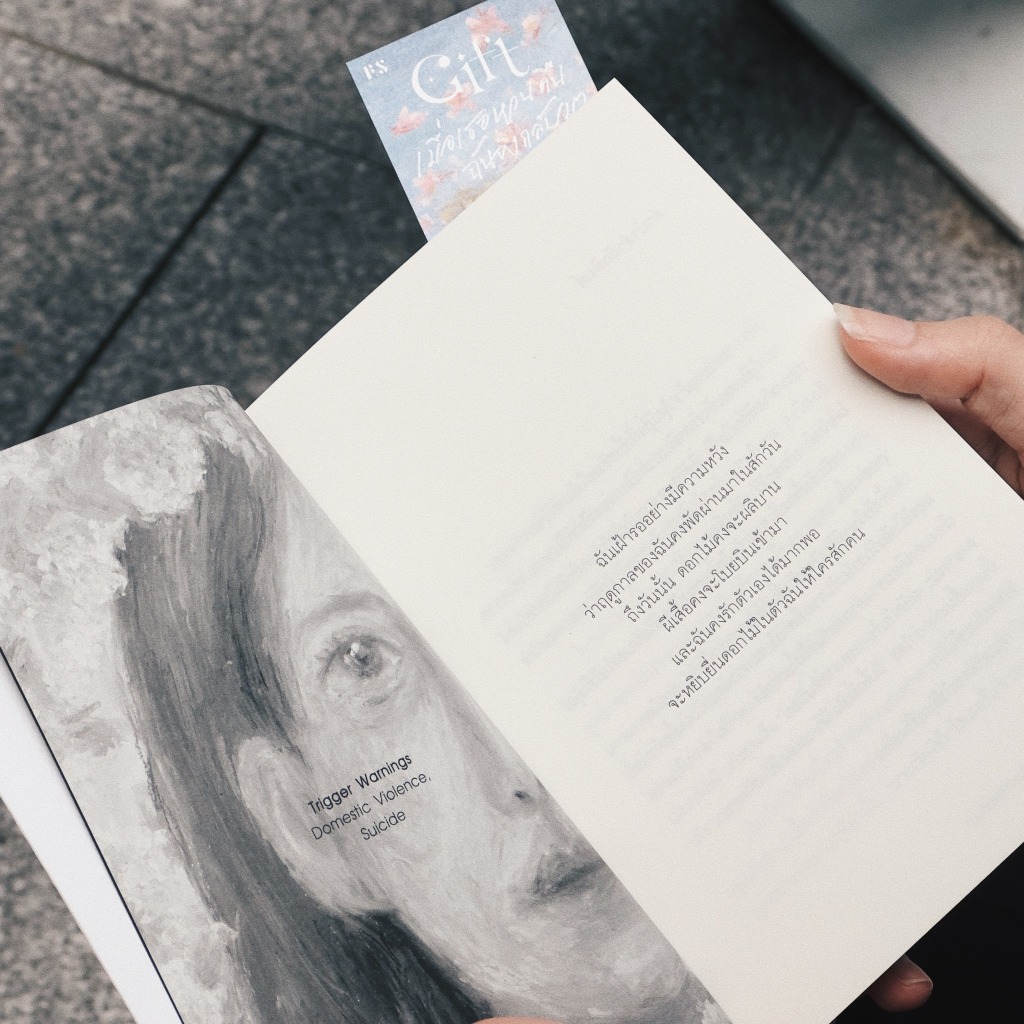 P.S.
Gift
เมื่อเธอหอบฝัน
Trigger Warnings
Domestic Violence,
Suicide
ฉันเฝ้ารออย่างมีความหวัง
ว่าฤดูกาลของฉันคงพัดผ่านมาในสักวัน
ถึงวันนั้น ดอกไม้คงจะผลิบาน
ผีเสื้อคงจะโบยบินเข้ามา
และฉันคงรักตัวเองได้มากพอ
จะหยิบยื่นดอกไม้ในตัวฉันให้ใครสักคน